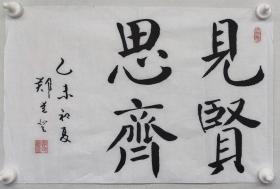 見賢
思齊
乙未初夏
鄭